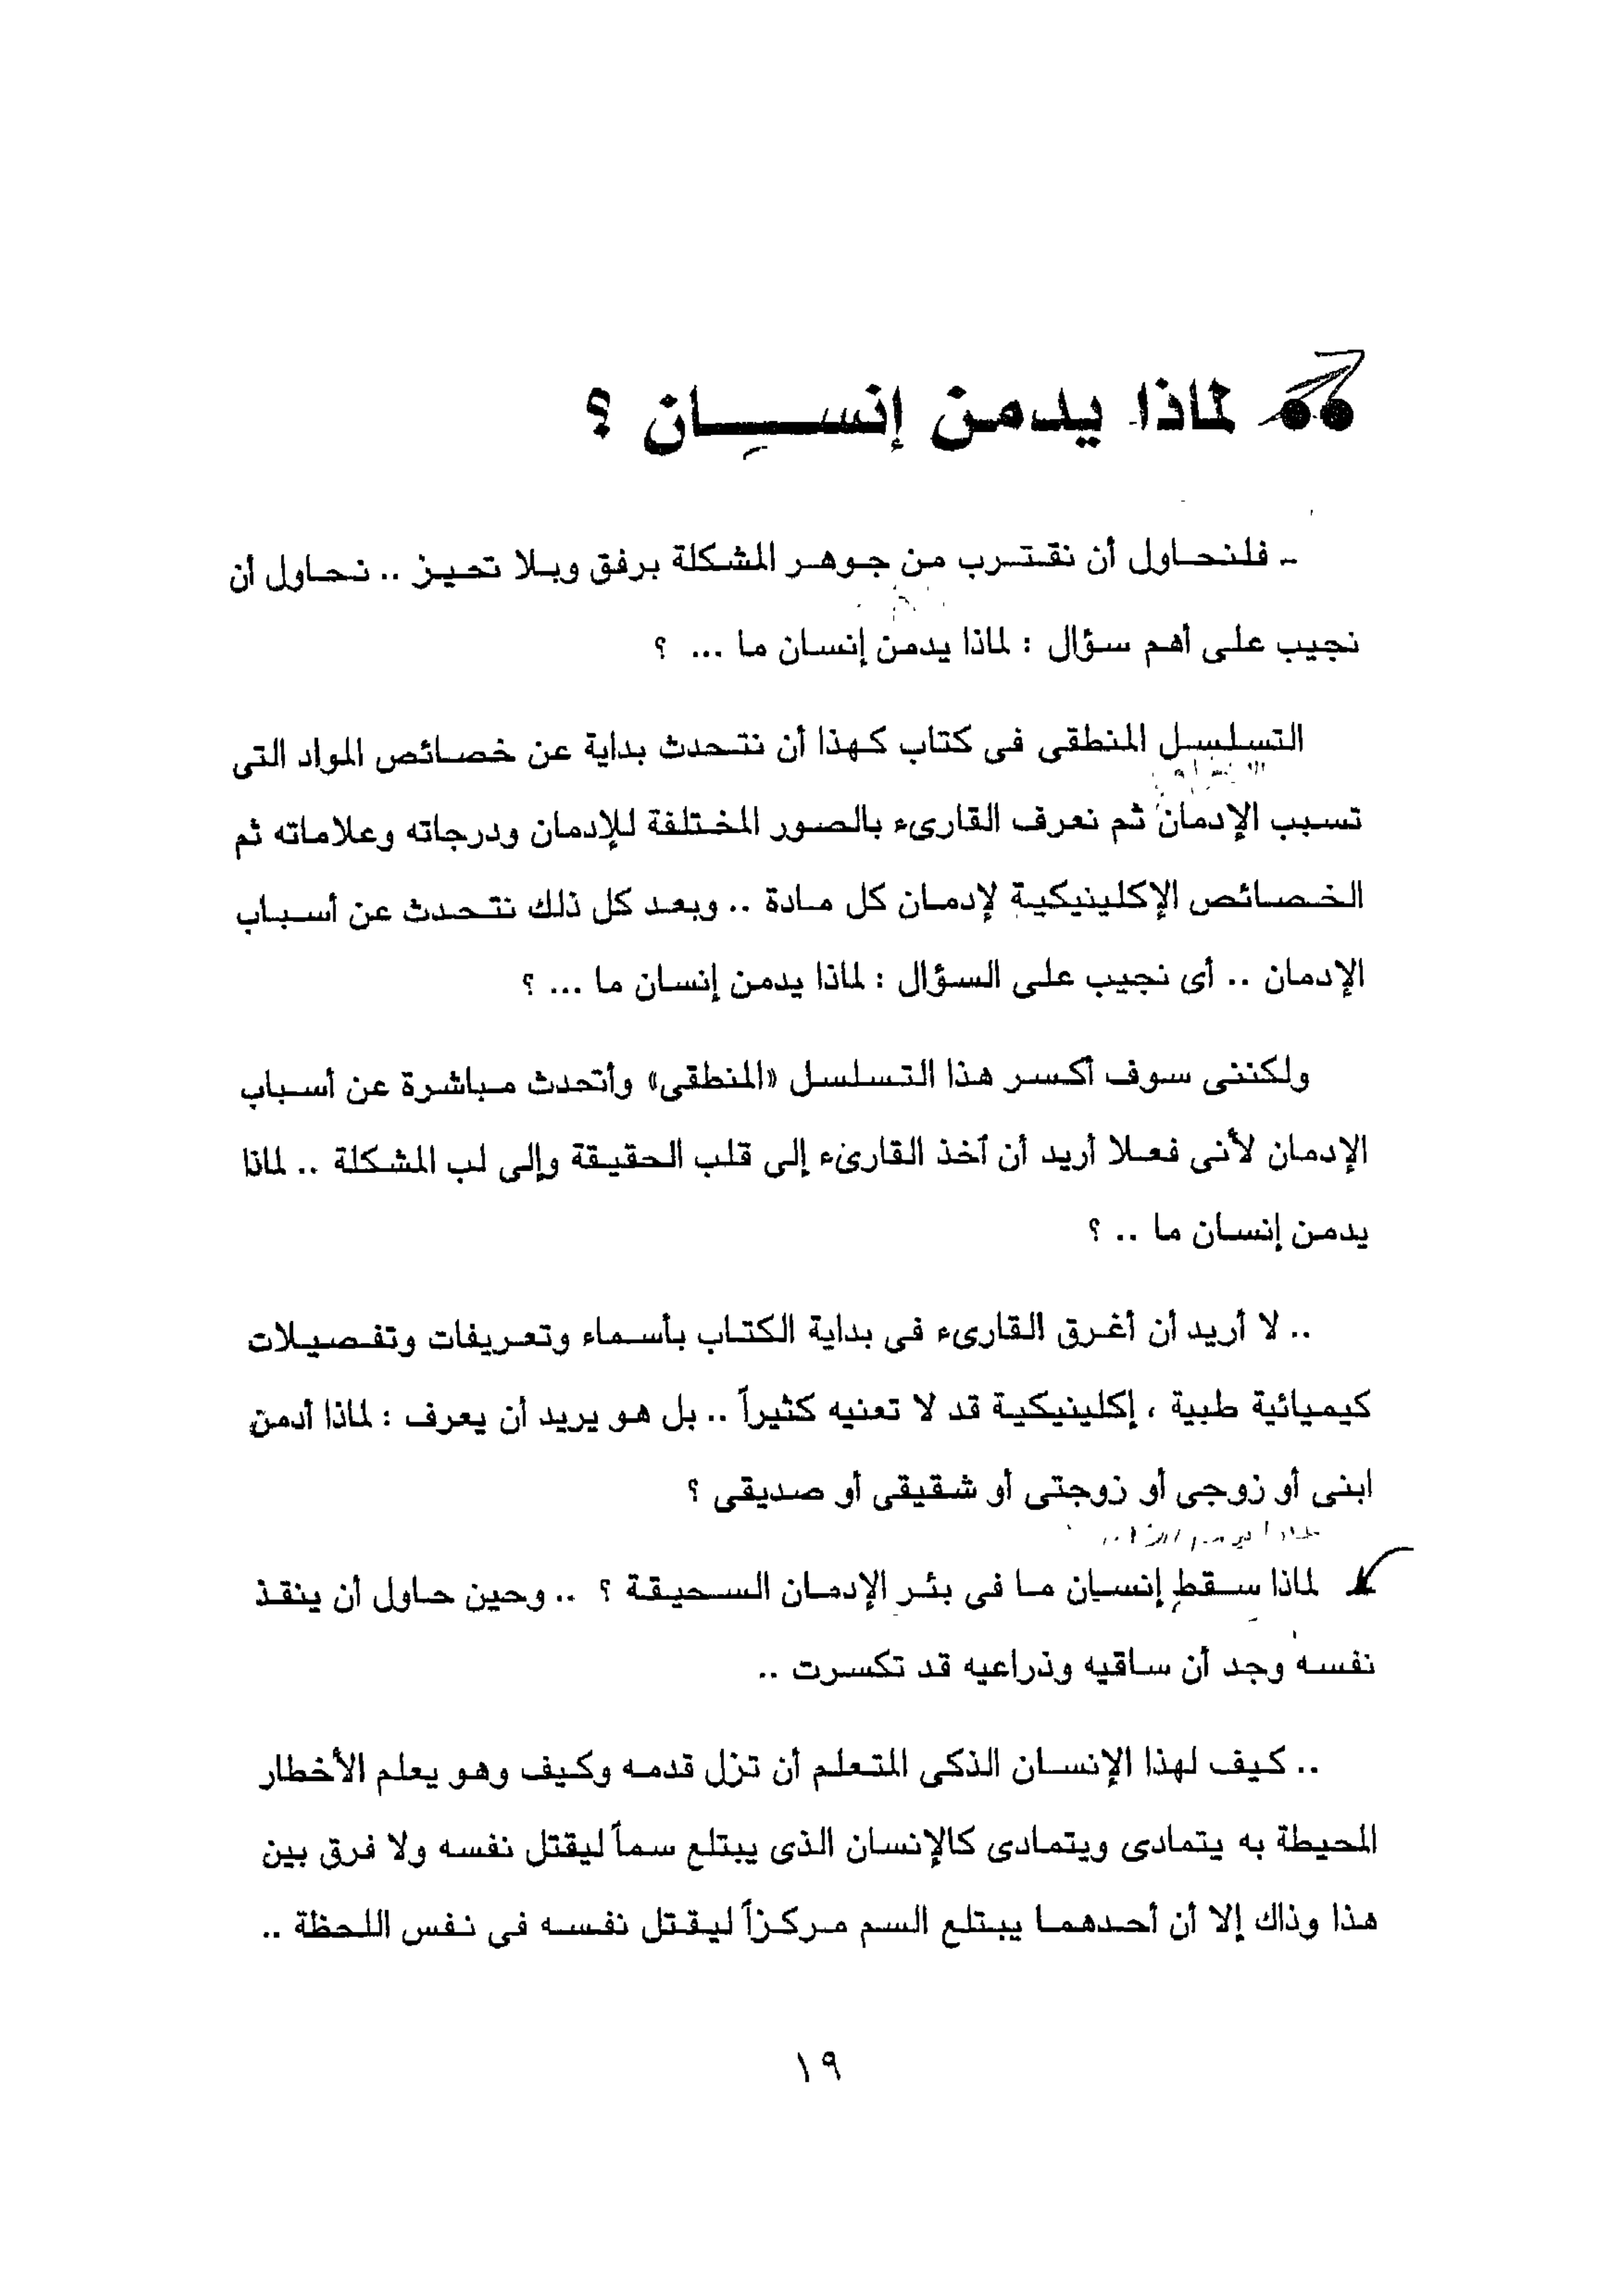 لماذا يدمن إنســـان ؟
ـ فلنحاول أن نقترب من جوهر المشكلة برفق وبلا تحيز .. نحاول أن
نجيب على أهم سؤال : لماذا يدمن إنسان ما ... ؟
التسلسل المنطقى فى كتاب كهذا أن نتحدث بداية عن خصائص المواد التى
تسبب الإدمان ثم نعرف القارىء بالصور المختلفة للإدمان ودرجاته وعلاماته ثم
الخصائص الإكلينيكية لإدمان كل مادة .. وبعد كل ذلك نتحدث عن أسباب
الإدمان .. أى نجيب على السؤال : لماذا يدمن إنسان ما ... ؟
ولكننى سوف أكسر هذا التسلسل «المنطقى» وأتحدث مباشرة عن أسباب
الإدمان لأنى فعلا أريد أن آخذ القارىء إلى قلب الحقيقة وإلى لب المشكلة .. لماذا
يدمن إنسان ما .. ؟
.. لا أريد أن أغرق القارىء فى بداية الكتاب بأسماء وتعريفات وتفصيلات
كيميائية طبية ، إكلينيكية قد لا تعنيه كثيراً .. بل هو يريد أن يعرف : لماذا أدمن
ابنى أو زوجى أو زوجتى أو شقيقى أو صديقى ؟
لماذا سقط إنسان ما فى بئر الإدمان السحيقة ؟ .. وحين حاول أن ينقذ
نفسه وجد أن ساقيه وذراعيه قد تكسرت ..
.. كيف لهذا الإنسان الذكى المتعلم أن تزل قدمه وكيف وهو يعلم الأخطار
المحيطة به يتمادى ويتمادى كالإنسان الذى يبتلع سماً ليقتل نفسه ولا فرق بين
هذا وذاك إلا أن أحدهما يبتلع السم مركزاً ليقتل نفسه فى نفس اللحظة ..
١٩